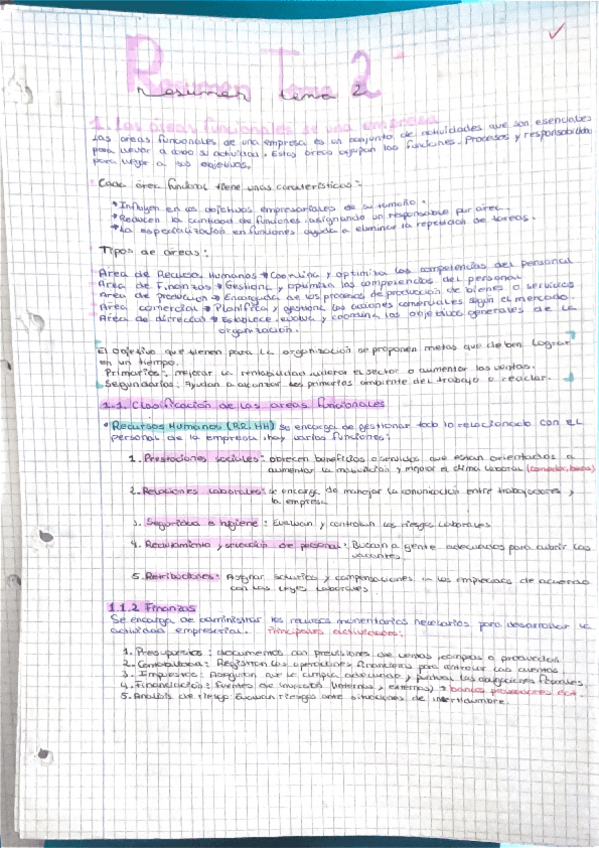 Resumen Tema 2
1. Las áreas funcionales de una empresa
Las áreas funcionales de una empresa es un conjunto de actividades que son esenciales
para llevar a cabo su actividad. Estas áreas agrupan las funciones, procesos y responsabilidades
para llegar a sus objetivos.
Cada área funcional tiene unas características:
Influyen en los objetivos empresariales de su tamaño.
Reducen la cantidad de funciones, asignando un responsable por área.
La especialización en funciones ayuda a eliminar la repetición de tareas.
Tipos de áreas:
Área de Recursos Humanos → Coordina y optimiza las competencias del personal
Área de Finanzas → Gestiona y optimiza las competencias del personal
Área de producción → Encargada de los procesos de producción de bienes o servicios
Área comercial → Planifica y gestiona las acciones comerciales según el mercado.
Área de dirección → Establece, evalúa y coordina los objetivos generales de la
organización.
El objetivo que tienen para la organización se proponen metas que deben lograr
en un tiempo.
Primarios: mejorar la rentabilidad, el sector o aumentar las ventas.
Segundarios: Ayudan a alcanzar los primarios ambiente del trabajo o reciclar.
1.1. Clasificación de las areas funcionales
Recursos Humanos (RR.HH) se encarga de gestionar todo lo relacionado con el
personal de la empresa, hay varias funciones:
1. Prestaciones sociales: ofrecen beneficios o servicios que están orientados a
aumentar la motivación y mejorar el clima laboral
2. Relaciones laborales: se encarga de manejar la comunicación entre trabajadores y
la empresa
3. Seguridad e higiene: Evaluan y controlan los riesgos laborales
4. Reclutamiento y selección de personal: Buscan a gente adecuados para cubrir las
vacantes
5. Retribuciones: Asignar salarios y compensaciones a los empleados de acuerdo
con las leyes laborales
1.1.2 Finanzas
Se encarga de administrar los recursos monetarios necesarios para desarrollar la
actividad empresarial. Principales actividades:
1. Presupuestos: documentos con previsiones de ventas, compras o producción
2. Contabilidad: Registran las operaciones financieras para controlar las cuentas
3. Impuestos: Aseguran que se cumpla adecuado y puntual las obligaciones fiscales
4. Financiación: Fuentes de (internas y externas) → bancos, proveedores ect.
5. Análisis de riesgo: Evaluan riesgos ante situaciones de incertidumbre.